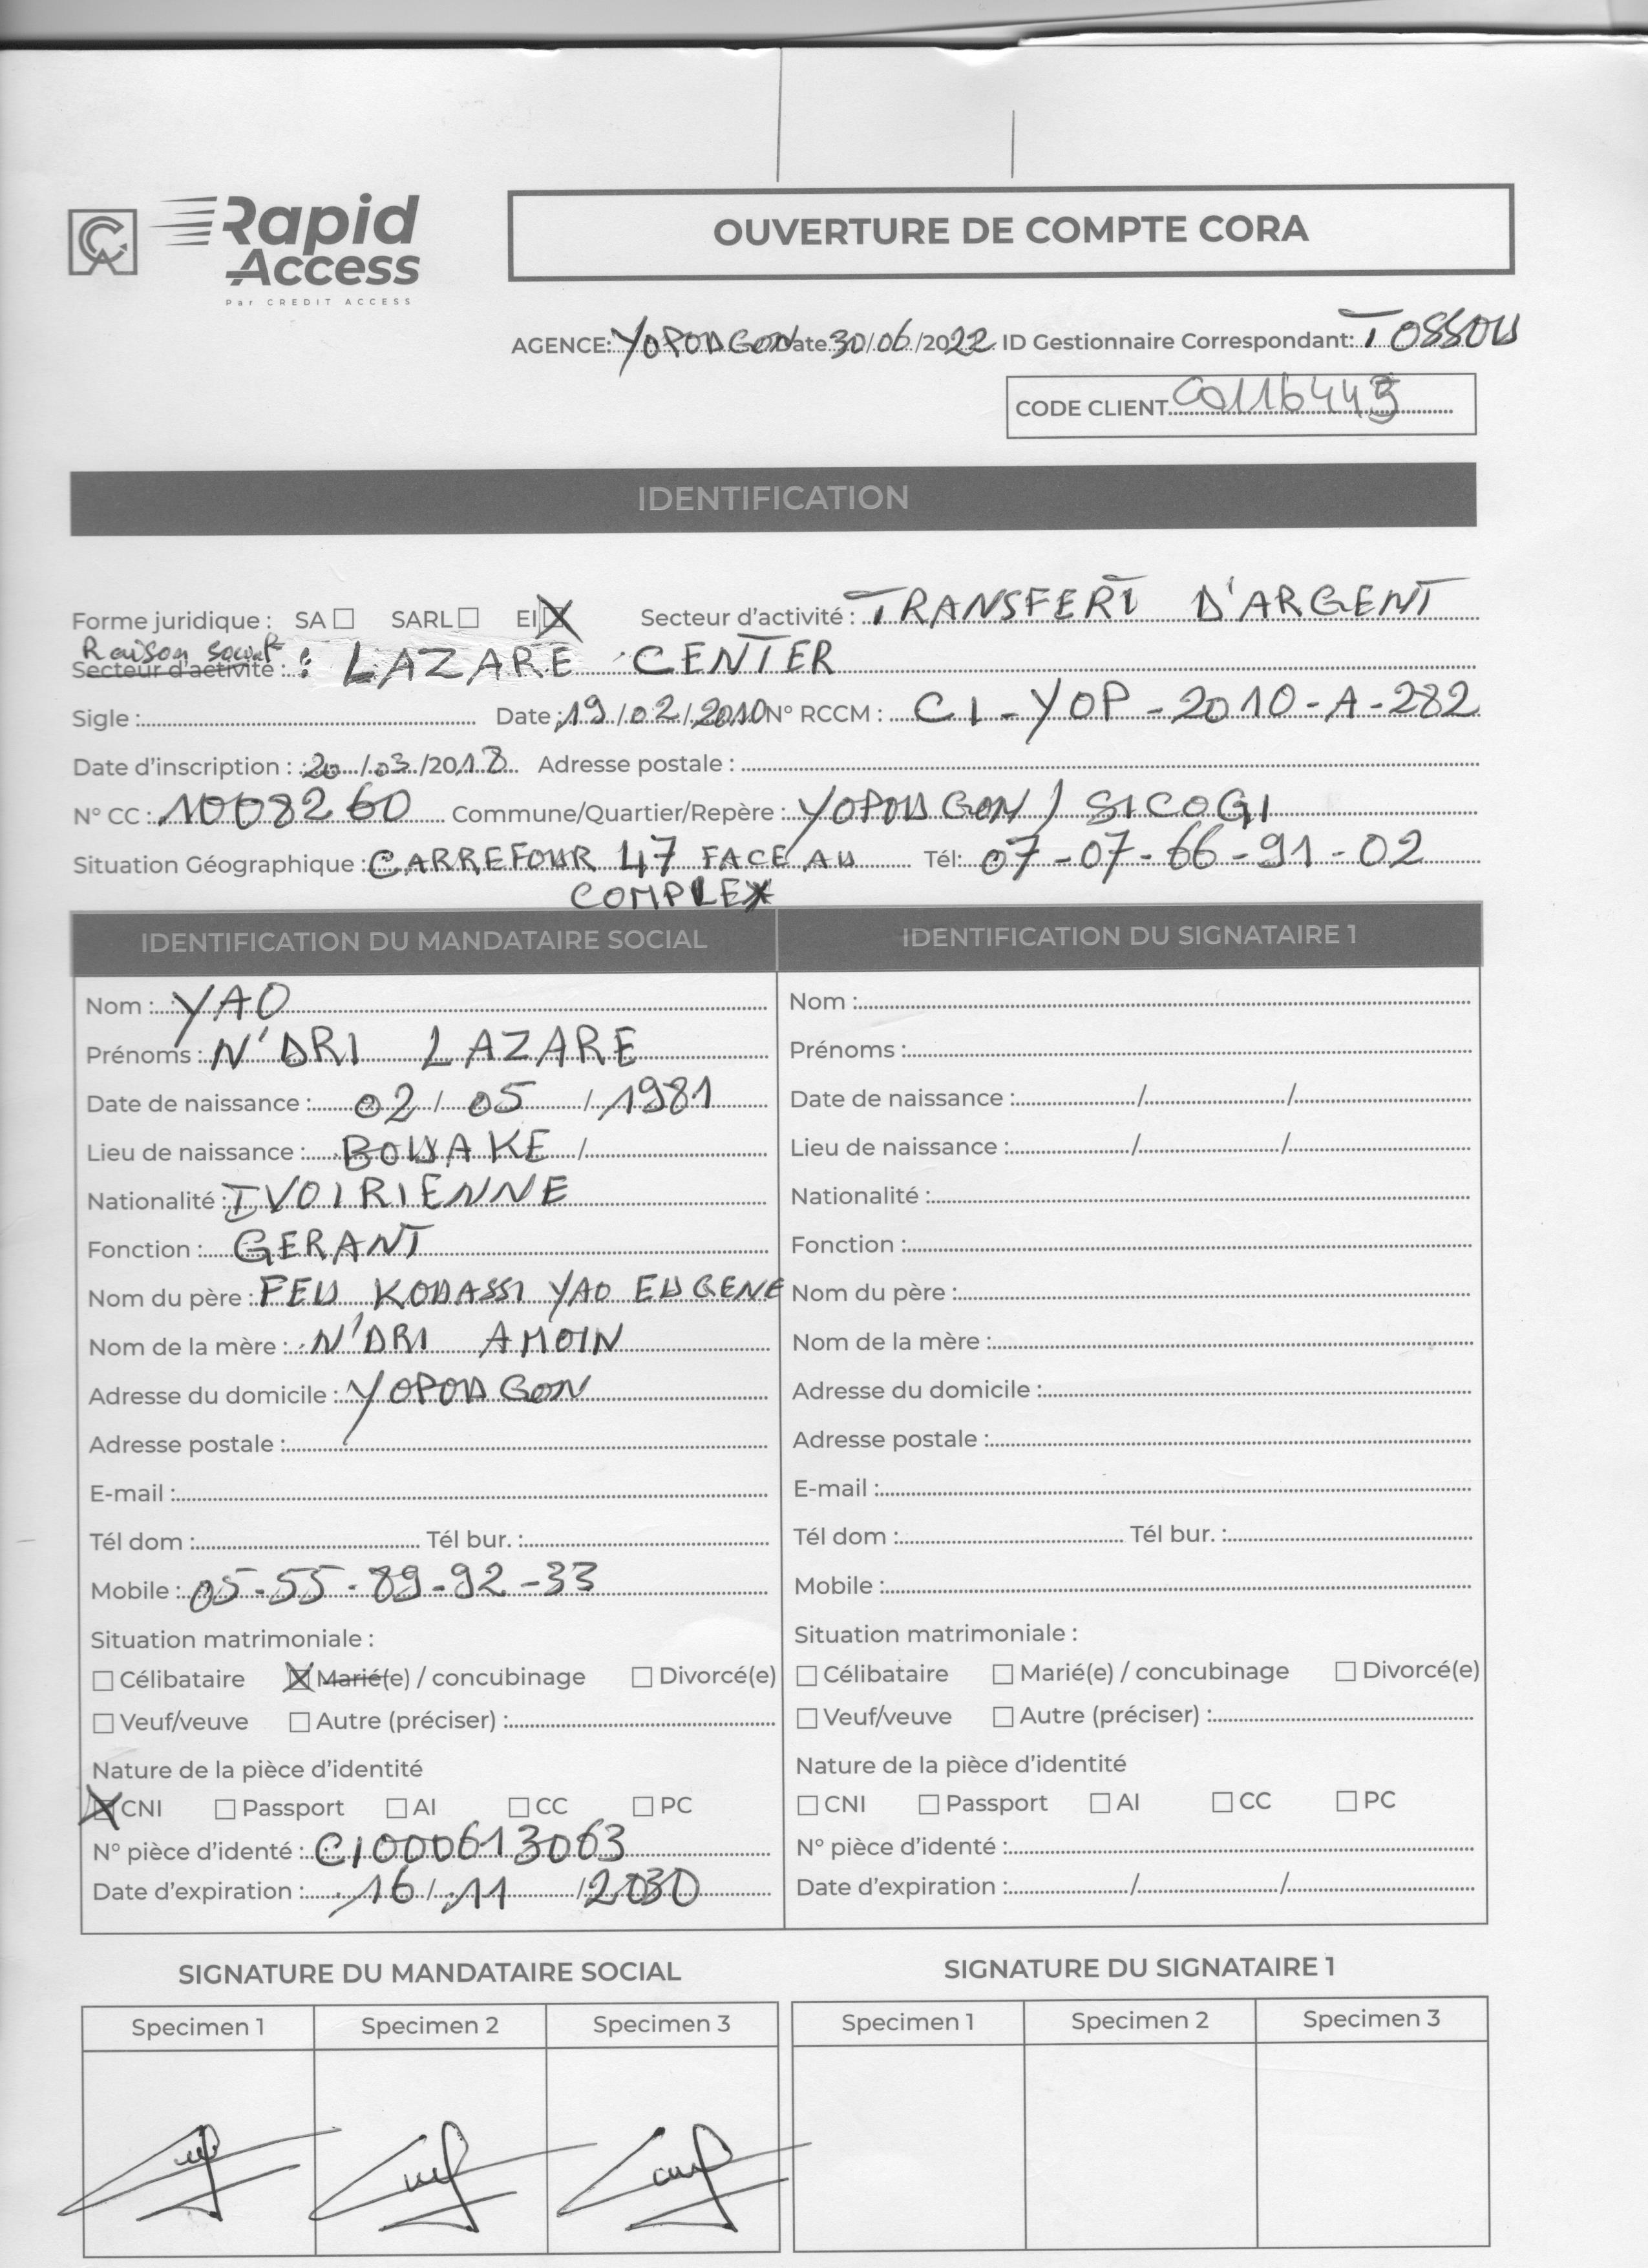 Rapid
Access
Par CREDIT ACCESS
OUVERTURE DE COMPTE CORA
AGENCE: YOPOUGON Date 30/06/2022 ID Gestionnaire Correspondant: TOSSOU
CODE CLIENT C0116443
IDENTIFICATION
Forme juridique : SA SARL EI Secteur d'activité : TRANSFERT D'ARGENT
Raison social
Secteur d'activité : : LAZARE CENTER
Sigle : Date : 19/02/2010 N° RCCM : CI-YOP-2010-A-282
Date d'inscription : 20/03/2018 Adresse postale :
N° CC : 1008260 Commune/Quartier/Repère : YOPOUGON / SICOGI
Situation Géographique : CARREFOUR 47 FACE AU Tél: 07-07-66-91-02
COMPLEX
IDENTIFICATION DU MANDATAIRE SOCIAL
Nom : YAO
Prénoms : N'DRI LAZARE
Date de naissance : 02 / 05 / 1981
Lieu de naissance : BOUAKE /
Nationalité : IVOIRIENNE
Fonction : GERANT
Nom du père : FEU KOUASSI YAO EUGENE
Nom de la mère : N'DRI AMOIN
Adresse du domicile : YOPOUGON
Adresse postale :
E-mail :
Tél dom : Tél bur. :
Mobile : 05-55-89-92-33
Situation matrimoniale :
Célibataire Marié(e) / concubinage Divorcé(e)
Veuf/veuve Autre (préciser) :
Nature de la pièce d'identité
CNI Passport AI CC PC
N° pièce d'identé : CI000613063
Date d'expiration : 16 / 11 / 2030
IDENTIFICATION DU SIGNATAIRE 1
Nom :
Prénoms :
Date de naissance : / /
Lieu de naissance : / /
Nationalité :
Fonction :
Nom du père :
Nom de la mère :
Adresse du domicile :
Adresse postale :
E-mail :
Tél dom : Tél bur. :
Mobile :
Situation matrimoniale :
Célibataire Marié(e) / concubinage Divorcé(e)
Veuf/veuve Autre (préciser) :
Nature de la pièce d'identité
CNI Passport AI CC PC
N° pièce d'identé :
Date d'expiration : / /
SIGNATURE DU MANDATAIRE SOCIAL
Specimen 1 Specimen 2 Specimen 3
SIGNATURE DU SIGNATAIRE 1
Specimen 1 Specimen 2 Specimen 3